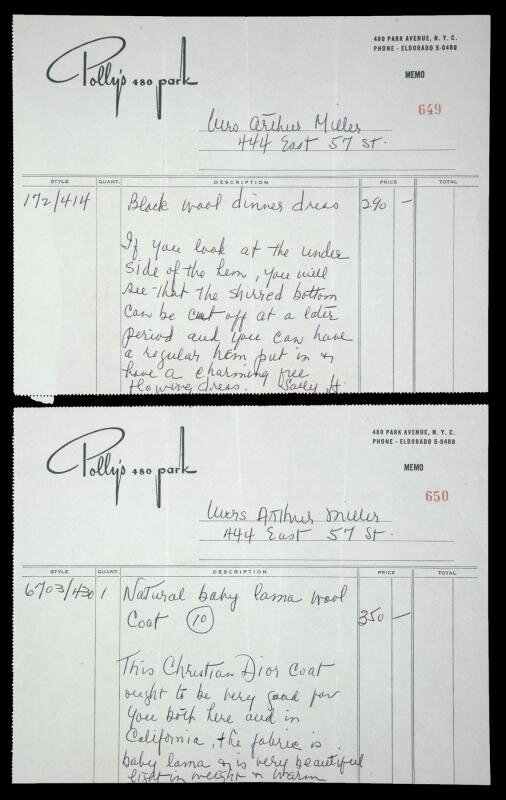 Polly's 480 park
480 PARK AVENUE, N. Y. C.
PHONE - ELDORADO 5-0480
MEMO
649
Mrs Arthur Miller
444 East 57 St.
STYLE QUANT. DESCRIPTION PRICE TOTAL
172/414 Black wool dinner dress 290 —
If you look at the under
side of the hem, you will
see that the shirred bottom
can be cut off at a later
period and you can have
a regular hem put in &
have a charming free
flowing dress. Sally H.
Polly's 480 park
480 PARK AVENUE, N. Y. C.
PHONE - ELDORADO 5-0480
MEMO
650
Mrs Arthur Miller
444 East 57 St.
STYLE QUANT. DESCRIPTION PRICE TOTAL
6703/430 1 Natural baby lama wool
Coat (10) 350 —
This Christian Dior Coat
ought to be very good for
you both here and in
California, the fabric is
baby lama & is very beautiful
light in weight & warm